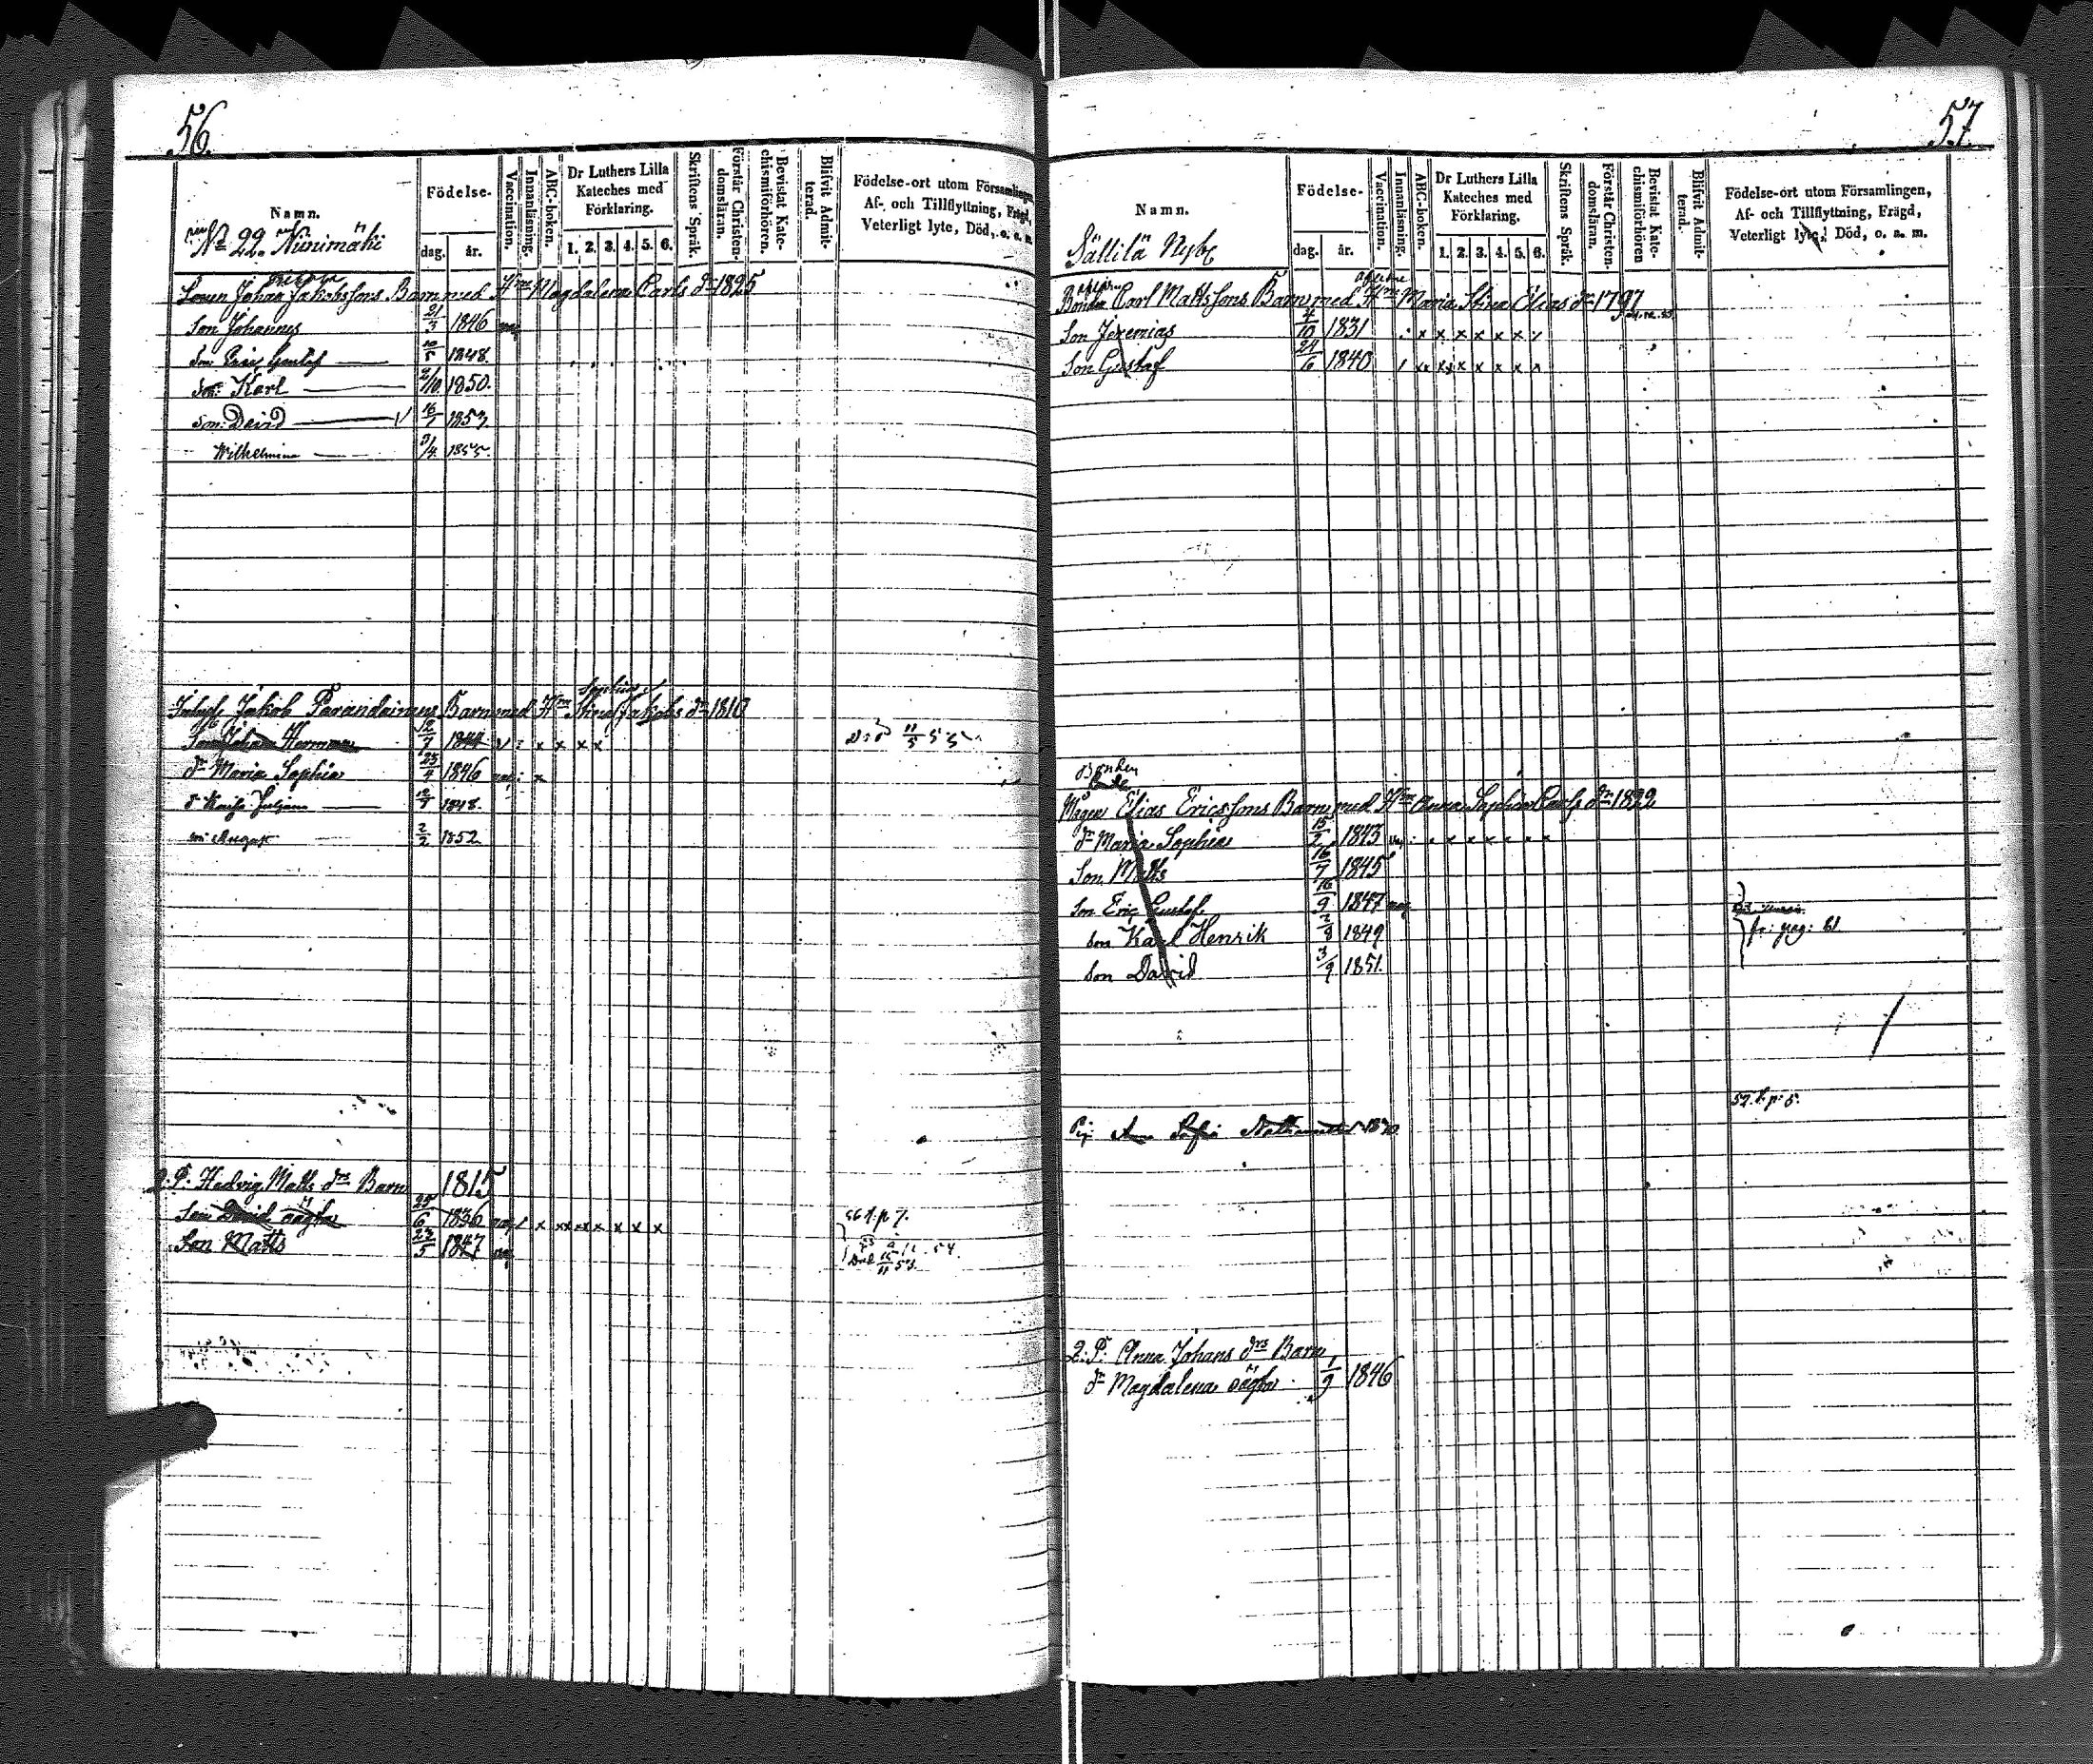 56.
Namn.
Födelse-
dag. år.
Vaccination.
Innanläsning.
ABC-boken.
Dr Luthers Lilla Kateches med Förklaring.
1. 2. 3. 4. 5. 6.
Skriftens Språk.
Förstår Christendomsläran.
Bevistat Katechismiförhören.
Blifvit Admitterad.
Födelse-ort utom Församlingen,
Af- och Tillflyttning, Frägd,
Veterligt lyte, Död, o. a. m.
No 22. Niinimäki
Sonen Johan Jakobssons Barn med Hm Magdalena Carls dr 1825
Son Johannes 21/3 1846
Son Gustaf 10/5 1848.
Son Karl 2/10 1850.
Son David 16/7 1853
Wilhelmina 3/4 1855.
Jakob Parandainens Barn med Hm Stina Jakobs dr 1810
Son Johan Herman 12/7 1844 v : x x x x Död 11/5 55
dr Maria Sophia 23/4 1846 x
d Kaisa Juliana 12/7 1848.
son August 2/2 1852
Q. P. Hedvig Matts drs Barn 1815
Son David oägta 25/6 1836 56 f. p 7.
Son Matts 23/5 1847 Död 15/11 53.
57.
Namn.
Födelse-
dag. år.
Vaccination.
Innanläsning.
ABC-boken.
Dr Luthers Lilla Kateches med Förklaring.
1. 2. 3. 4. 5. 6.
Skriftens Språk.
Förstår Christendomsläran.
Bevistat Katechismiförhören
Blifvit Admitterad.
Födelse-ort utom Församlingen,
Af- och Tillflyttning, Frägd,
Veterligt lyte, Död, o. a. m.
Sällilä
Bonden Carl Mattssons Barn med Hm Maria Stina Elias dr 1797
Son Jeremias 4/10 1831 : x x x x x x x
Son Gustaf 24/6 1840
Bonden
Mågen Elias Ericssons Barn med Hm Anna Sophia Carls dr 1822
dr Maria Sophia 15/2 1843
Son Matts 16/7 1845
Son Eric Gustaf 16/9 1847
Son Karl Henrik 2/9 1849
Son David 3/9 1851.
pag: 61
57. f. p. 5.
Pig. Sofia 1830
Q. P. Anna Johans drs Barn
dr Magdalena oägta 1/9 1846